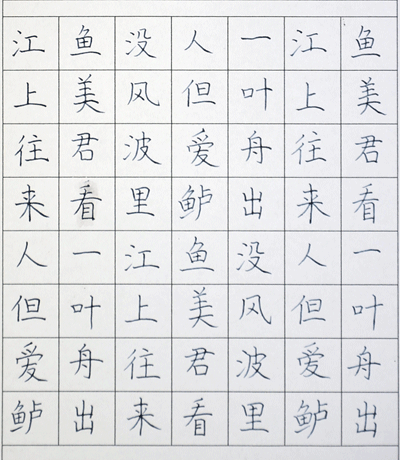 江上往来人但爱鲈
鱼美君看一叶舟出
没风波里江上往来
人但爱鲈鱼美君看
一叶舟出没风波里
江上往来人但爱鲈
鱼美君看一叶舟出